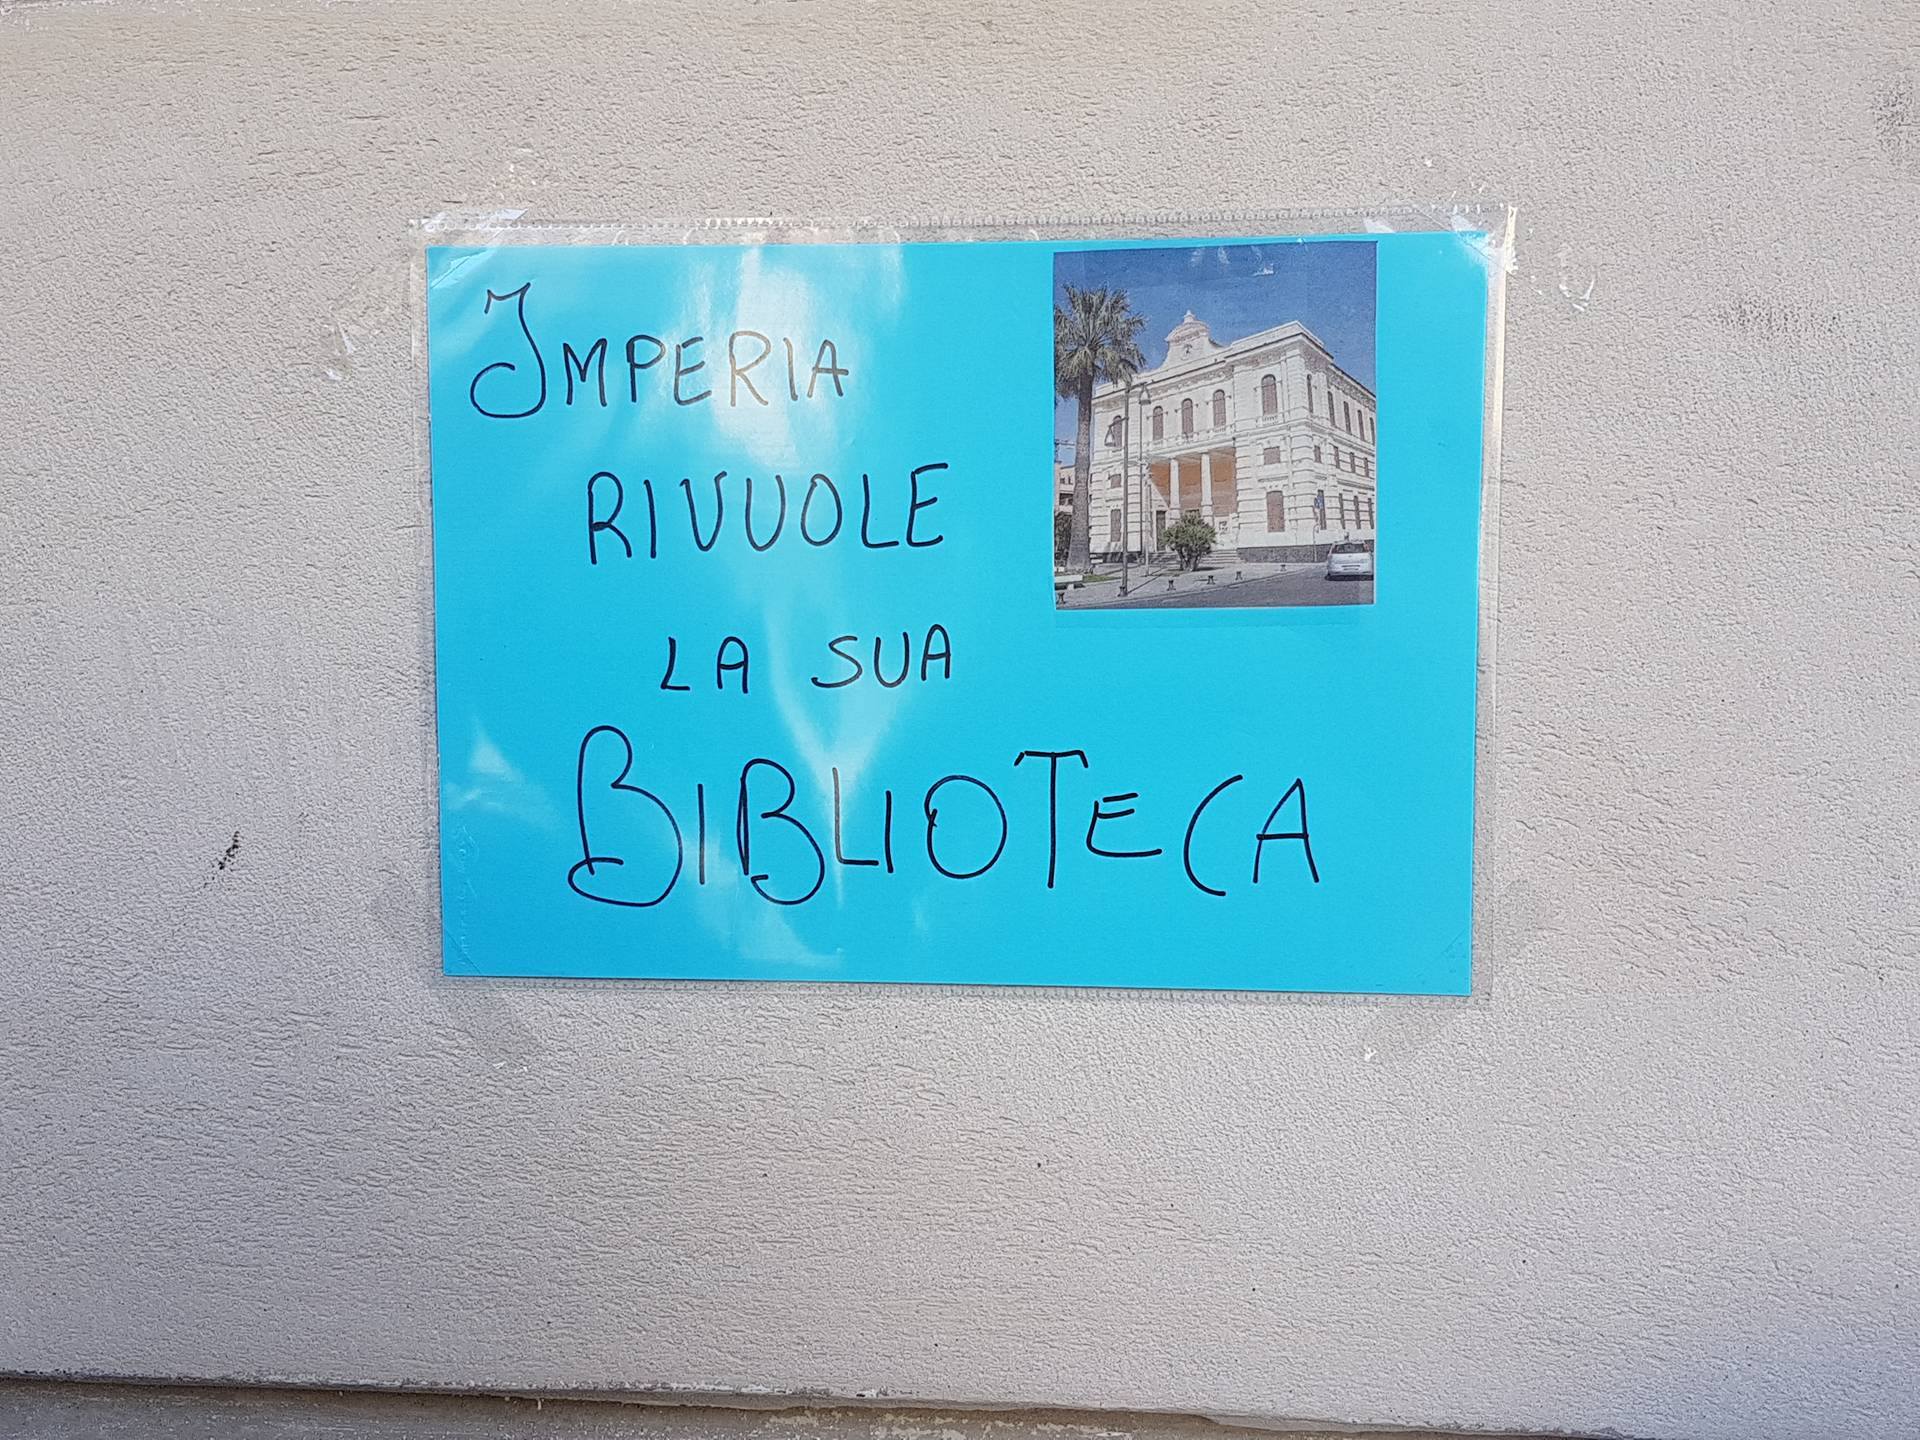 IMPERIA
RIVUOLE
LA SUA
BIBLIOTECA